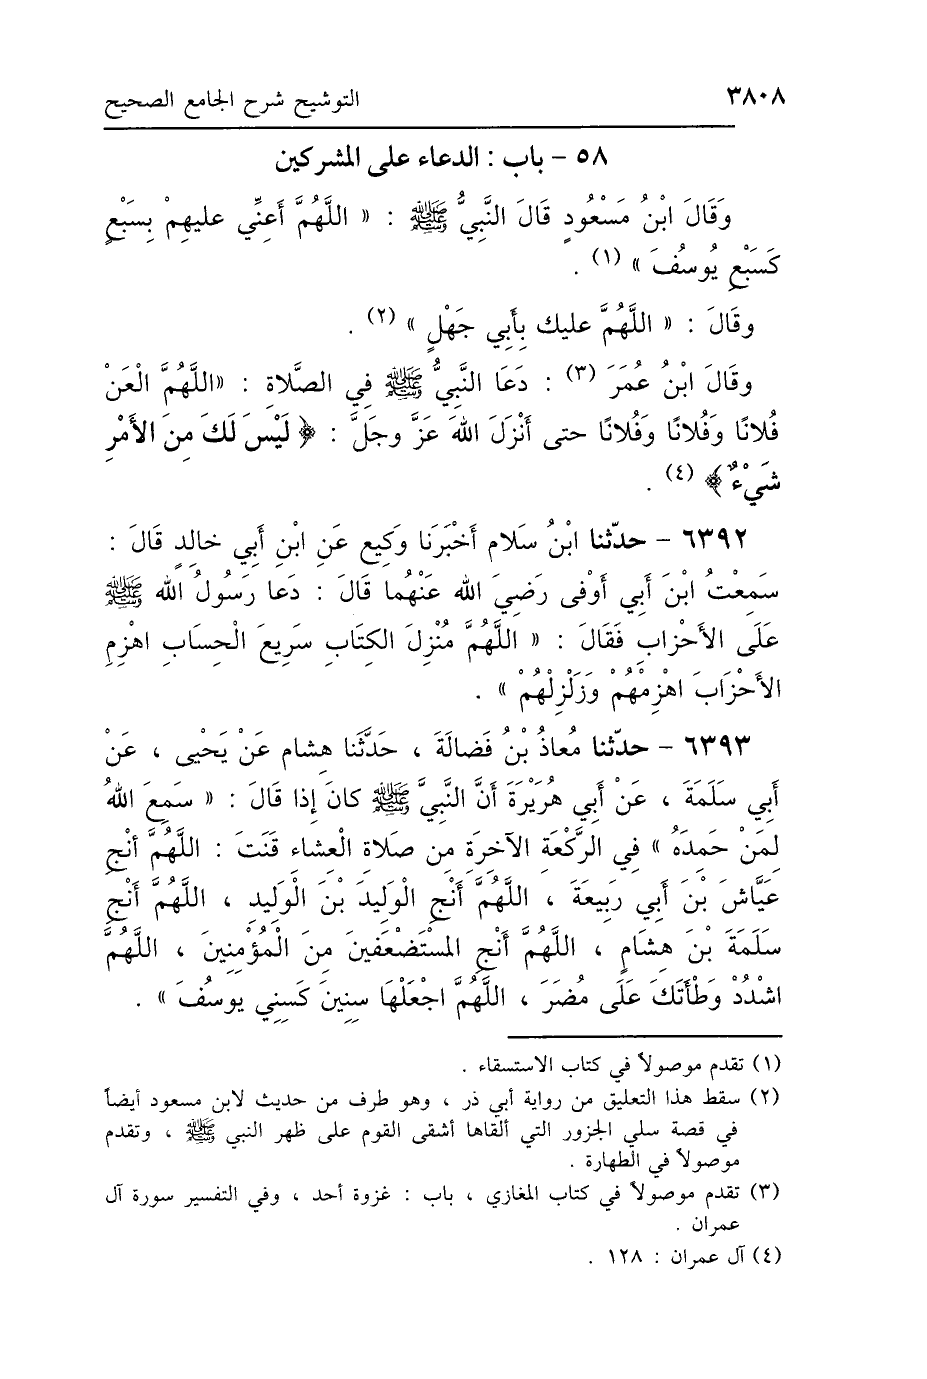 ٣٨٠٨
التوشيح شرح الجامع الصحيح
٥٨ – باب : الدعاء على المشركين
وَقَالَ ابْنُ مَسْعُودٍ قَالَ النَّبِيُّ ﷺ : « اللَّهُمَّ أَعِنِّي عليهِمْ بِسَبْعٍ
كَسَبْعِ يُوسُفَ » (١) .
وقَالَ : « اللَّهُمَّ عليك بِأَبِي جَهْلٍ » (٢) .
وقَالَ ابْنُ عُمَرَ (٣) : دَعَا النَّبِيُّ ﷺ فِي الصَّلاةِ : «اللَّهُمَّ الْعَنْ
فُلانًا وَفُلانًا وَفُلانًا حتى أَنْزَلَ اللهَ عَزَّ وجَلَّ : ﴿ لَيْسَ لَكَ مِنَ الأَمْرِ
شَيْءٌ ﴾ (٤) .
٦٣٩٢ – حدّثنا ابْنُ سَلام أَخْبَرَنَا وَكِيع عَنِ ابْنِ أَبِي خالِدٍ قَالَ :
سَمِعْتُ ابْنَ أَبِي أَوْفى رَضِيَ الله عَنْهُما قَالَ : دَعا رَسُولُ الله ﷺ
عَلَى الأَحْزابِ فَقَالَ : « اللَّهُمَّ مُنْزِلَ الكِتَابِ سَرِيعَ الْحِسَابِ اهْزِمِ
الأَحْزَابَ اهْزِمْهُمْ وَزَلْزِلْهُمْ » .
٦٣٩٣ – حدّثنا مُعاذُ بْنُ فَضالَةَ ، حَدَّثَنا هِشام عَنْ يَحْيى ، عَنْ
أَبِي سَلَمَةَ ، عَنْ أَبِي هُرَيْرَةَ أَنَّ النَّبِيَّ ﷺ كانَ إِذا قَالَ : « سَمِعَ اللهُ
لِمَنْ حَمِدَهُ » فِي الرَّكْعَةِ الآخِرَةِ مِن صَلاةِ الْعِشاءِ قَنَتَ : اللَّهُمَّ أَنْجِ
عَيَّاشَ بْنَ أَبِي رَبِيعَةَ ، اللَّهُمَّ أَنْجِ الْوَلِيدَ بْنَ الْوَلِيدِ ، اللَّهُمَّ أَنْجِ
سَلَمَةَ بْنَ هِشَامٍ ، اللَّهُمَّ أَنْجِ المُسْتَضْعَفِينَ مِنَ الْمُؤْمِنِينَ ، اللَّهُمَّ
اشْدُدْ وَطْأَتَكَ عَلَى مُضَرَ ، اللَّهُمَّ اجْعَلْهَا سِنِينَ كَسِنِي يوسُفَ » .
(١) تقدم موصولاً في كتاب الاستسقاء .
(٢) سقط هذا التعليق من رواية أبي ذر ، وهو طرف من حديث لابن مسعود أيضاً
في قصة سلي الجزور التي ألقاها أشقى القوم على ظهر النبي ﷺ ، وتقدم
موصولاً في الطهارة .
(٣) تقدم موصولاً في كتاب المغازي ، باب : غزوة أحد ، وفي التفسير سورة آل
عمران .
(٤) آل عمران : ١٢٨ .